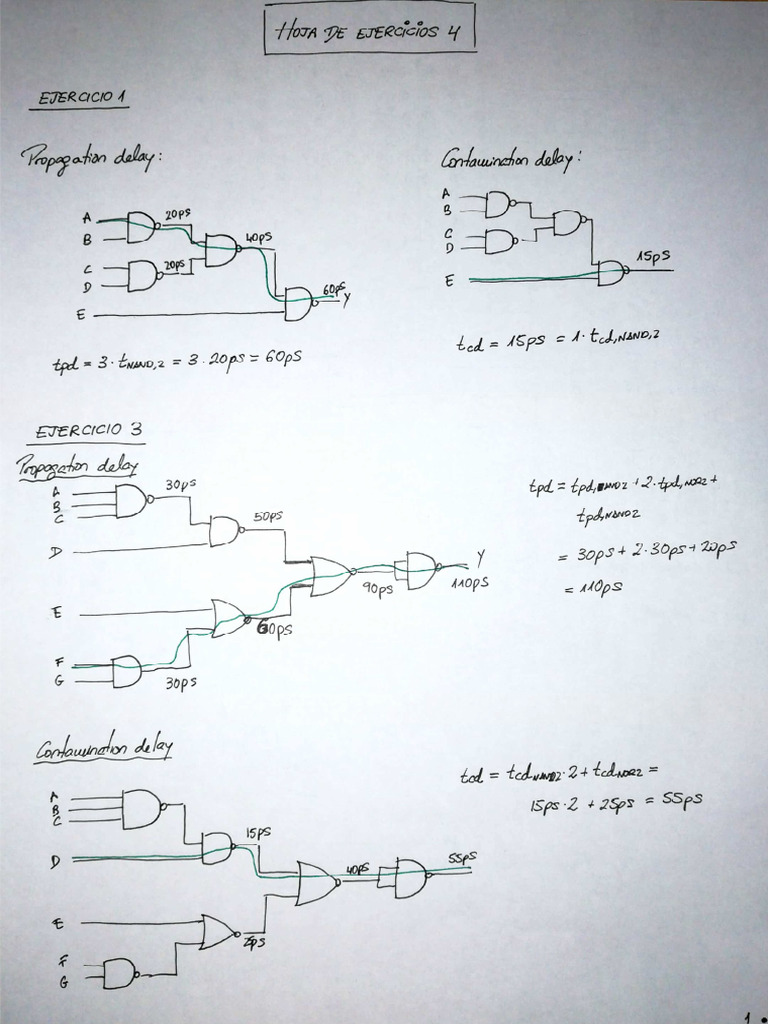 HOJA DE EJERCICIOS 4
EJERCICIO 1
Propagation delay:
A
B
C
D
E
20ps
20ps
40ps
60ps
Y
tpd = 3 · tNAND,2 = 3 · 20ps = 60ps
Contamination delay:
A
B
C
D
E
15ps
tcd = 15ps = 1 · tcd,NAND,2
EJERCICIO 3
Propagation delay
A
B
C
30ps
D
50ps
E
60ps
F
G
30ps
90ps
Y
110ps
tpd = tpd,AND2 + 2 · tpd,NOR2 +
tpd,NAND2
= 30ps + 2 · 30ps + 20ps
= 110ps
Contamination delay
A
B
C
D
15ps
E
F
G
40ps
55ps
tcd = tcdNAND2 · 2 + tcdNOR2 =
15ps · 2 + 25ps = 55ps
1